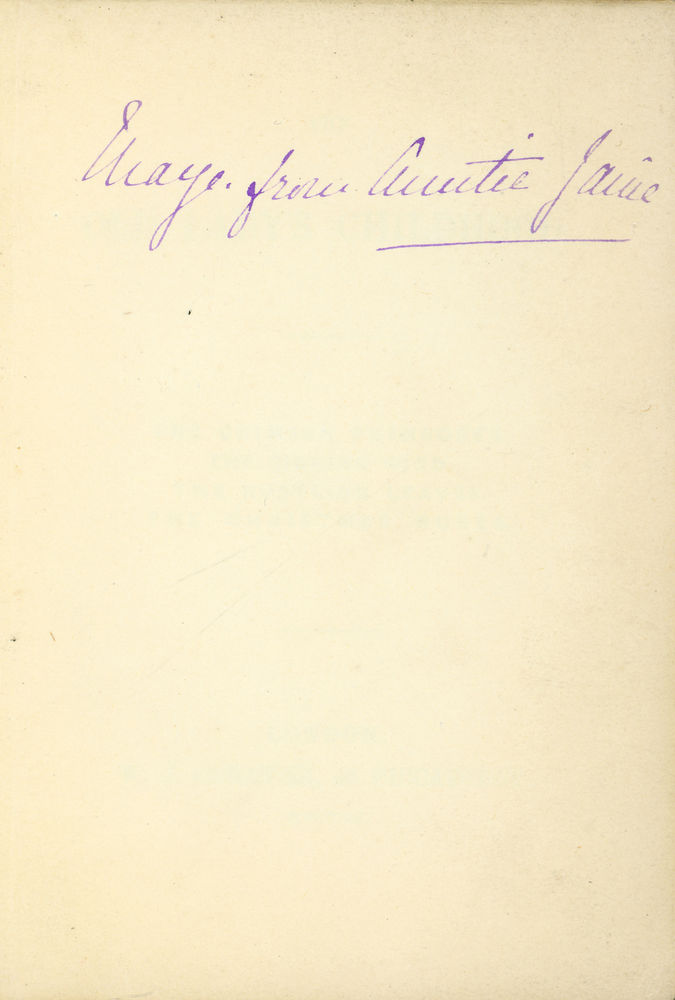 Maye. from Auntie Janie